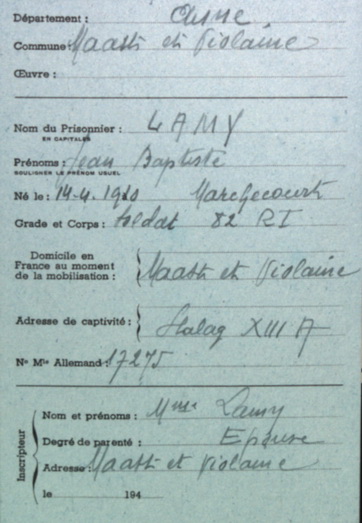 Département : Aisne
Commune Maast et Violaine
Œuvre :
Nom du Prisonnier : LAMY
EN CAPITALES
Prénoms : Jean Baptiste
SOULIGNER LE PRÉNOM USUEL
Né le : 14-4-1910
Grade et Corps : soldat 82 RI
Domicile en
France au moment
de la mobilisation : Maast et Violaine
Adresse de captivité : Stalag XIII A
Nº Mle Allemand : 17275
Inscripteur
Nom et prénoms : Mme Lamy
Degré de parenté : Epouse
Adresse Maast et Violaine
le 194